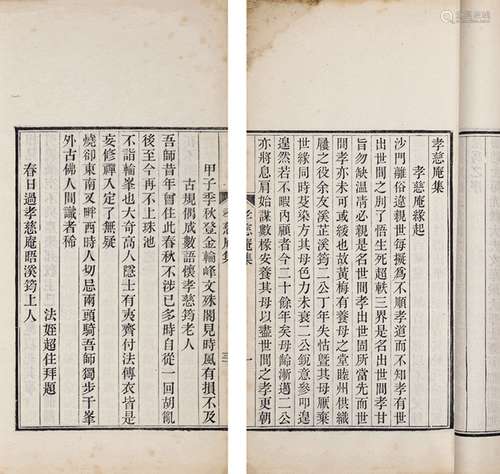 孝慈庵集
孝慈庵緣起
沙門離俗違親世每擬為不順孝道而不知孝有世
出世間之別了悟生死超軼三界是名出世間孝甘
旨勿缺溫凊必親是名世間孝出世固所當先而世
間孝亦未可或緩也故黃梅有養母之堂睦州供織
屨之役余友溪芷溪筠二公丁年失怙暨其母厭棄
世緣同時薙染方其母氣力未衰二公銳意參叩遑
遑然若不暇內顧者今二十餘年矣母齡漸邁二公
亦將息肩始謀數椽安養其母以盡世間之孝更朝
孝慈庵集
一
甲子季秋登金輪峰文殊閣見時風有損不及
古規偶成數語懷孝慈筠老人
吾師昔年曾住此春秋不涉已多時自從一回胡亂
後至今再不上珠池
不詣輪峯也大奇高人隱士有夷齊付法傳衣皆是
妄修禪入定更無疑
燒卻東南又畔西時人切忌兩頭騎吾師獨步千峯
外古佛人間識者稀
法姪超住拜題
春日過孝慈庵晤溪筠上人
三